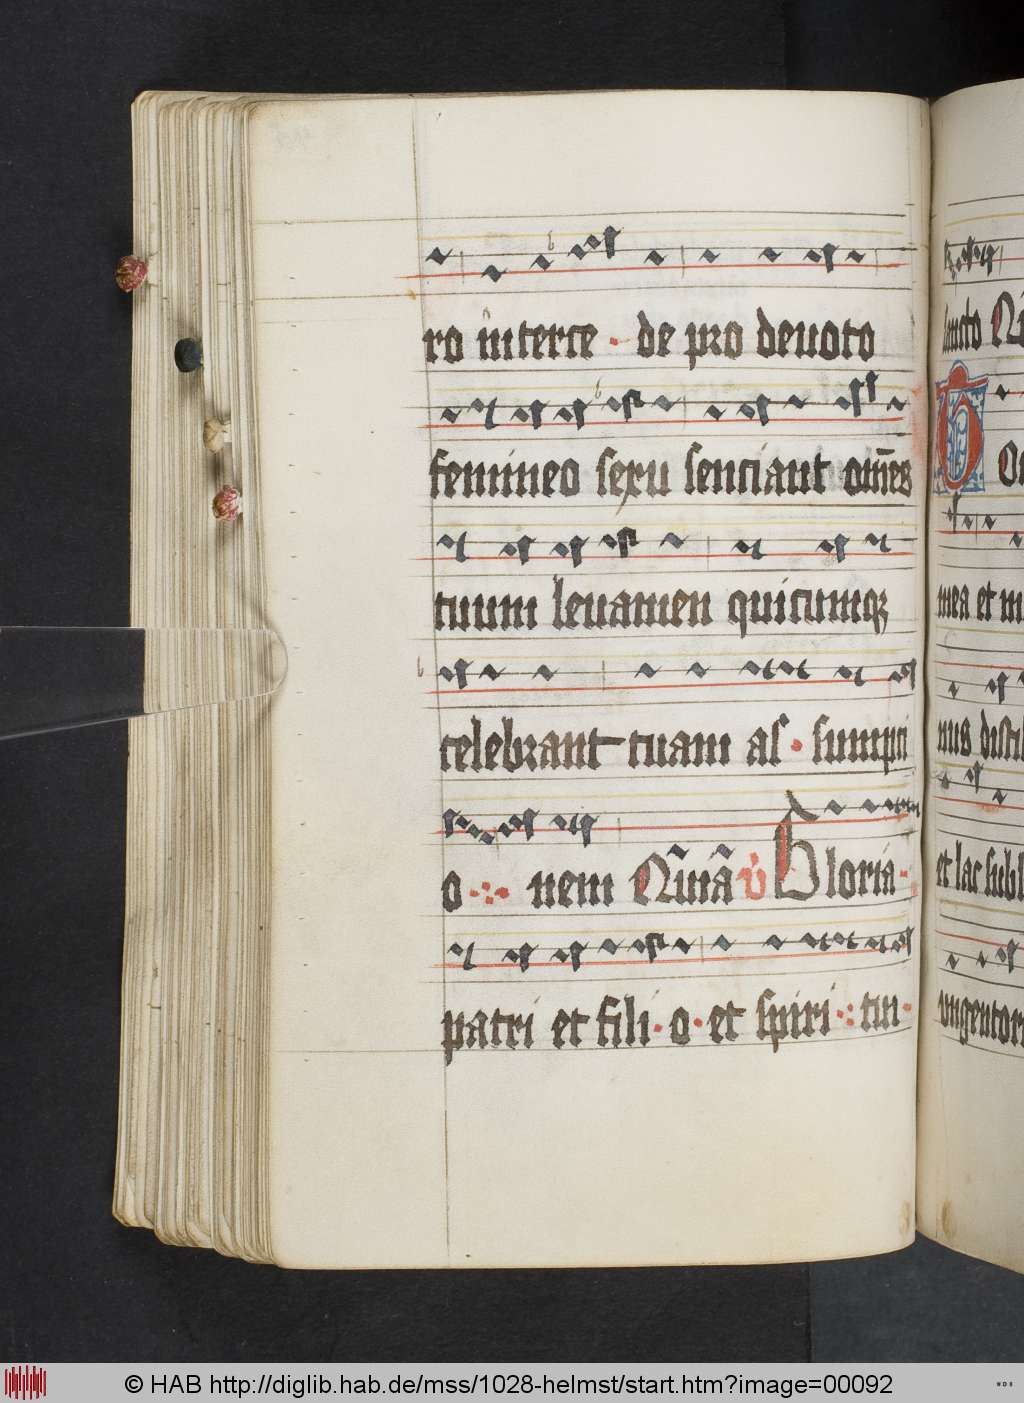 ro interce de pro deuoto
femineo sexu senciant om̄es
tuum leuamen quicumqꝫ
celebrant tuam as sumpci
o nem Gloria
patri et fili o et spiri tui
sancto
mea et m
nus distil
et lac sub l
vngentor
© HAB http://diglib.hab.de/mss/1028-helmst/start.htm?image=00092